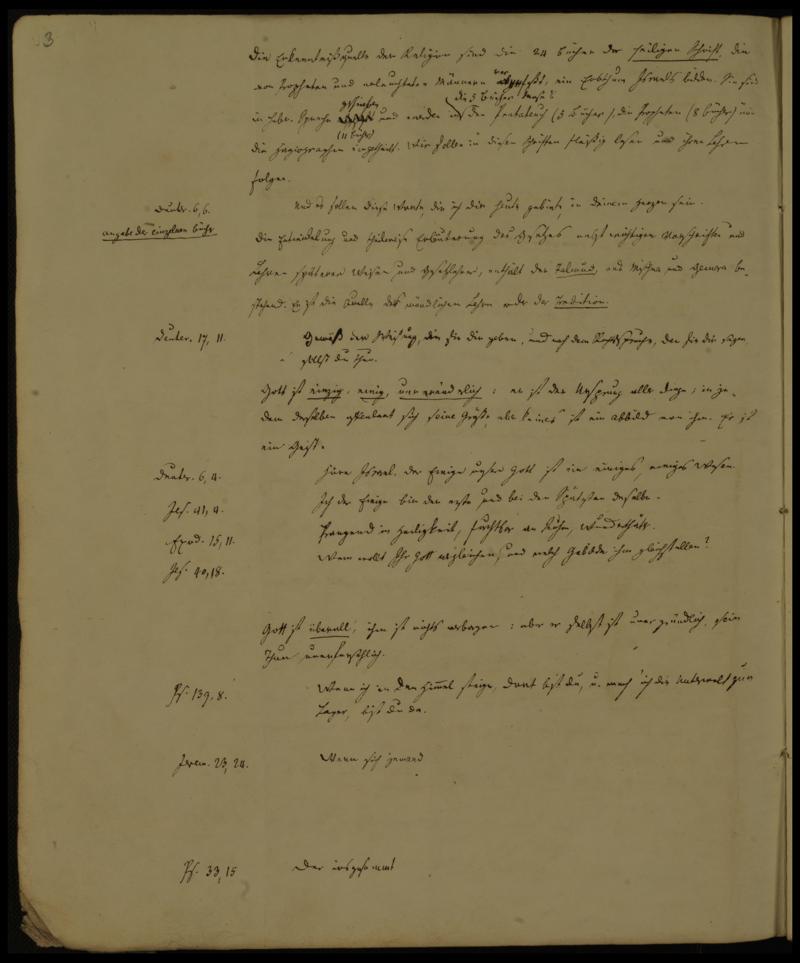 3
Die Erkenntnißquelle der Religion sind die 24 Bücher der heiligen Schrift, die
von Propheten und erleuchteten Männern verfaßt, ein Erbthum Israels bilden. Sie sind
geschrieben (die 5 Bücher Mose's
in hebr. Sprache und werden in den Pentateuch (5 Bücher), die Propheten (8 Bücher) und
(11 Bücher)
die Hagiographen eingetheilt. Wir sollen in diesen Schriften fleißig lesen und ihren Lehren
folgen.
Deuter. 6,6. Und es sollen diese Worte, die ich dir heute gebiete, in deinem Herzen sein.
Angabe der einzelnen Bücher
Die Entwickelung und Erläuterung des Gesetzes nebst wichtigen Vorschriften und
Lehren späterer Weisen und Gesetzlehrer, enthält der Talmud, aus Mischna und Gemara be-
stehend. Er ist die Quelle der mündlichen Lehre oder der Tradition.
Deuter. 17, 11. Gemäß der Weisung, die sie dir geben, und nach dem Rechtsspruche, den sie dir sagen,
sollst du thun.
Gott ist einzig, einig, unveränderlich: er ist der Ursprung aller Dinge; in je-
dem derselben offenbart sich seine Größe, aber keines ist ein Abbild von ihm. Er ist
ein Geist.
Deuter. 6, 4. Höre Israel. der Ewige unser Gott ist ein einiges, ewiges Wesen.
Jes. 41, 4. Ich der Ewige bin der erste und bei den Spätesten derselbe.
Exod. 15, 11. Prangend in Heiligkeit, furchtbar an Ruhm, Wunderthäter.
Jes. 40,18. Wem wollt Ihr Gott vergleichen, und welch Gebilde ihm gleichstellen?
Gott ist überall, ihm ist nichts verborgen: aber er selbst ist unergründlich, sein
Thun unerforschlich.
Ps. 139, 8. Wenn ich in den Himmel steige, dort bist du, u. mach' ich die Unterwelt zum
Lager, bist du da.
Jerem. 23, 24. Wenn sich jemand
Ps. 33, 15 Der insgesammt